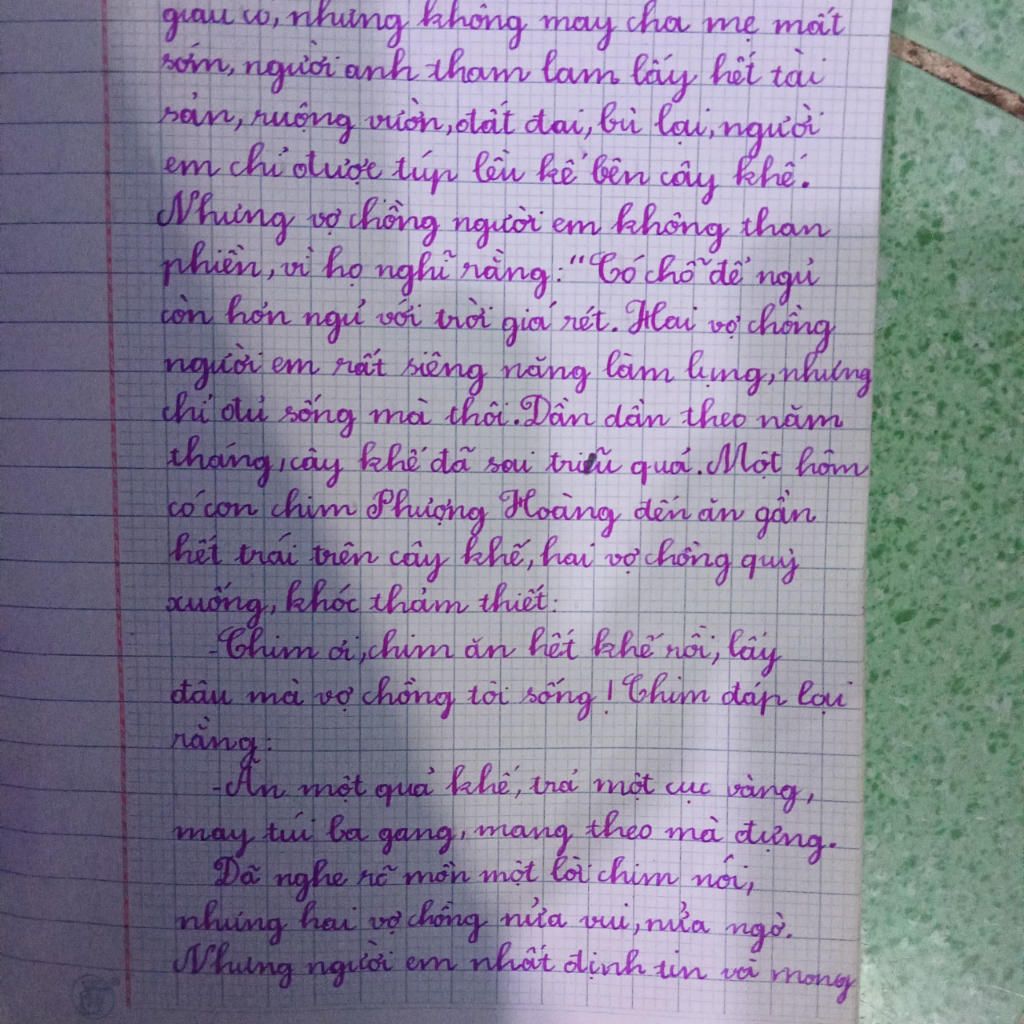 giàu có, nhưng không may cha mẹ mất
sớm, người anh tham lam lấy hết tài
sản, ruộng vườn, đất đai, bù lại, người
em chỉ được túp lều kế bên cây khế.
Nhưng vợ chồng người em không than
phiền, vì họ nghĩ rằng: "Có chỗ để ngủ
còn hơn ngủ với trời giá rét. Hai vợ chồng
người em rất siêng năng làm lụng, nhưng
chỉ đủ sống mà thôi. Dần dần theo năm
tháng, cây khế đã sai trĩu quả. Một hôm
có con chim Phượng Hoàng đến ăn gần
hết trái trên cây khế, hai vợ chồng quỳ
xuống, khóc thảm thiết:
-Chim ơi, chim ăn hết khế rồi, lấy
đâu mà vợ chồng tôi sống! Chim đáp lại
rằng:
-Ăn một quả khế, trả một cục vàng,
may túi ba gang, mang theo mà đựng.
Đã nghe rõ mồn một lời chim nói,
nhưng hai vợ chồng nửa vui, nửa ngờ.
Nhưng người em nhất định tin và mong